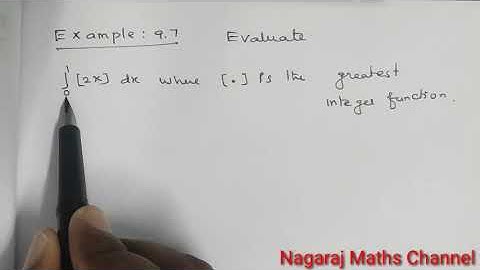 Example: 9.7 Evaluate
∫₀¹ [2x] dx where [.] is the greatest
integer function.
Nagaraj Maths Channel